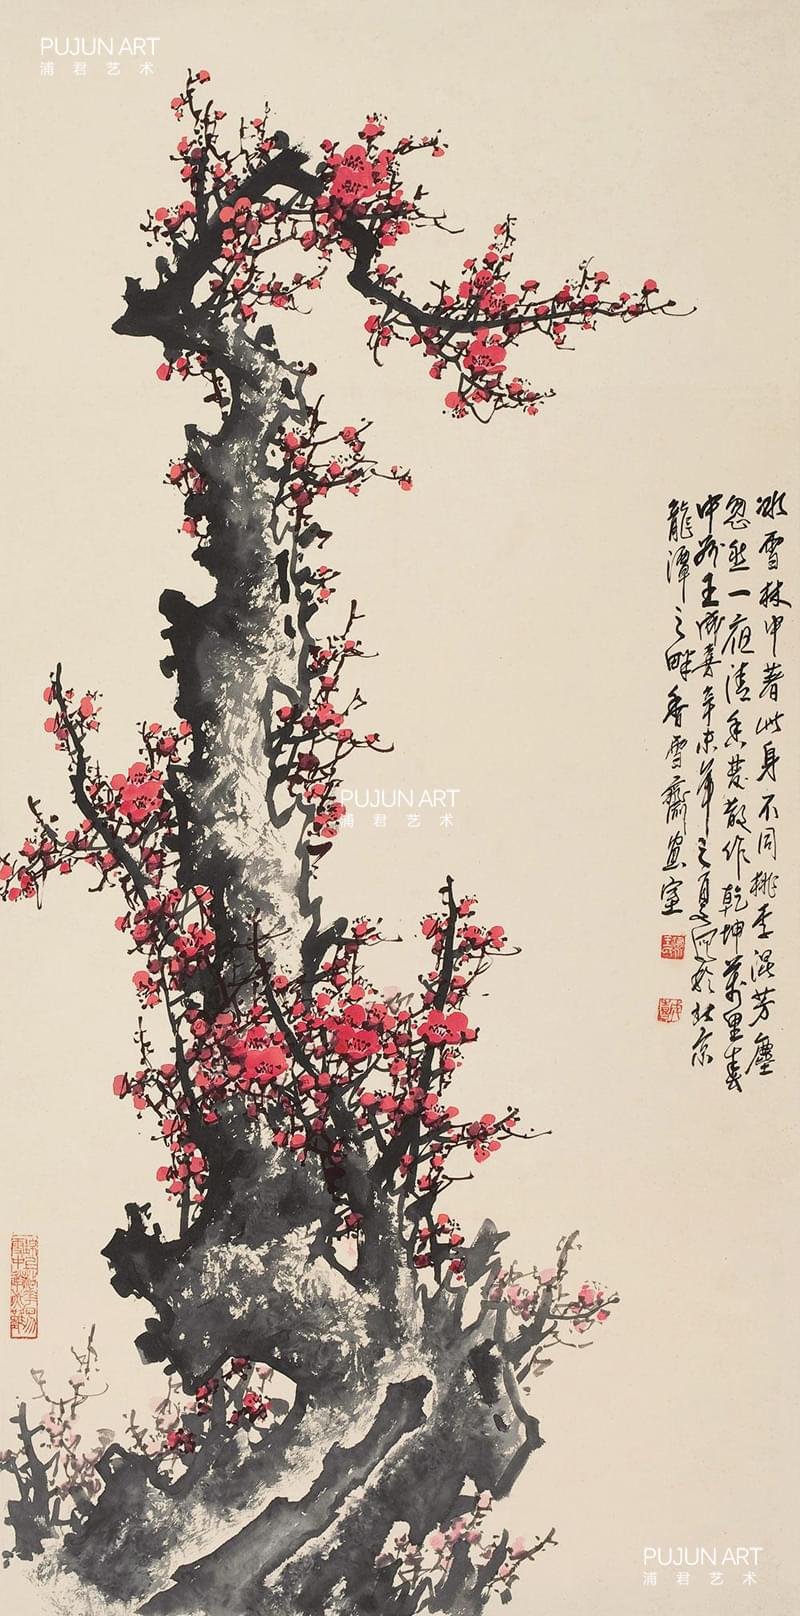 PUJUN ART
浦君艺术
冰雪林中著此身不同桃李混芳塵
忽然一夜清香發散作乾坤萬里春
中州王成喜辛未年之夏写於北京
龍潭之畔香雪齋画室
PUJUN ART
浦君艺术
PUJUN ART
浦君艺术